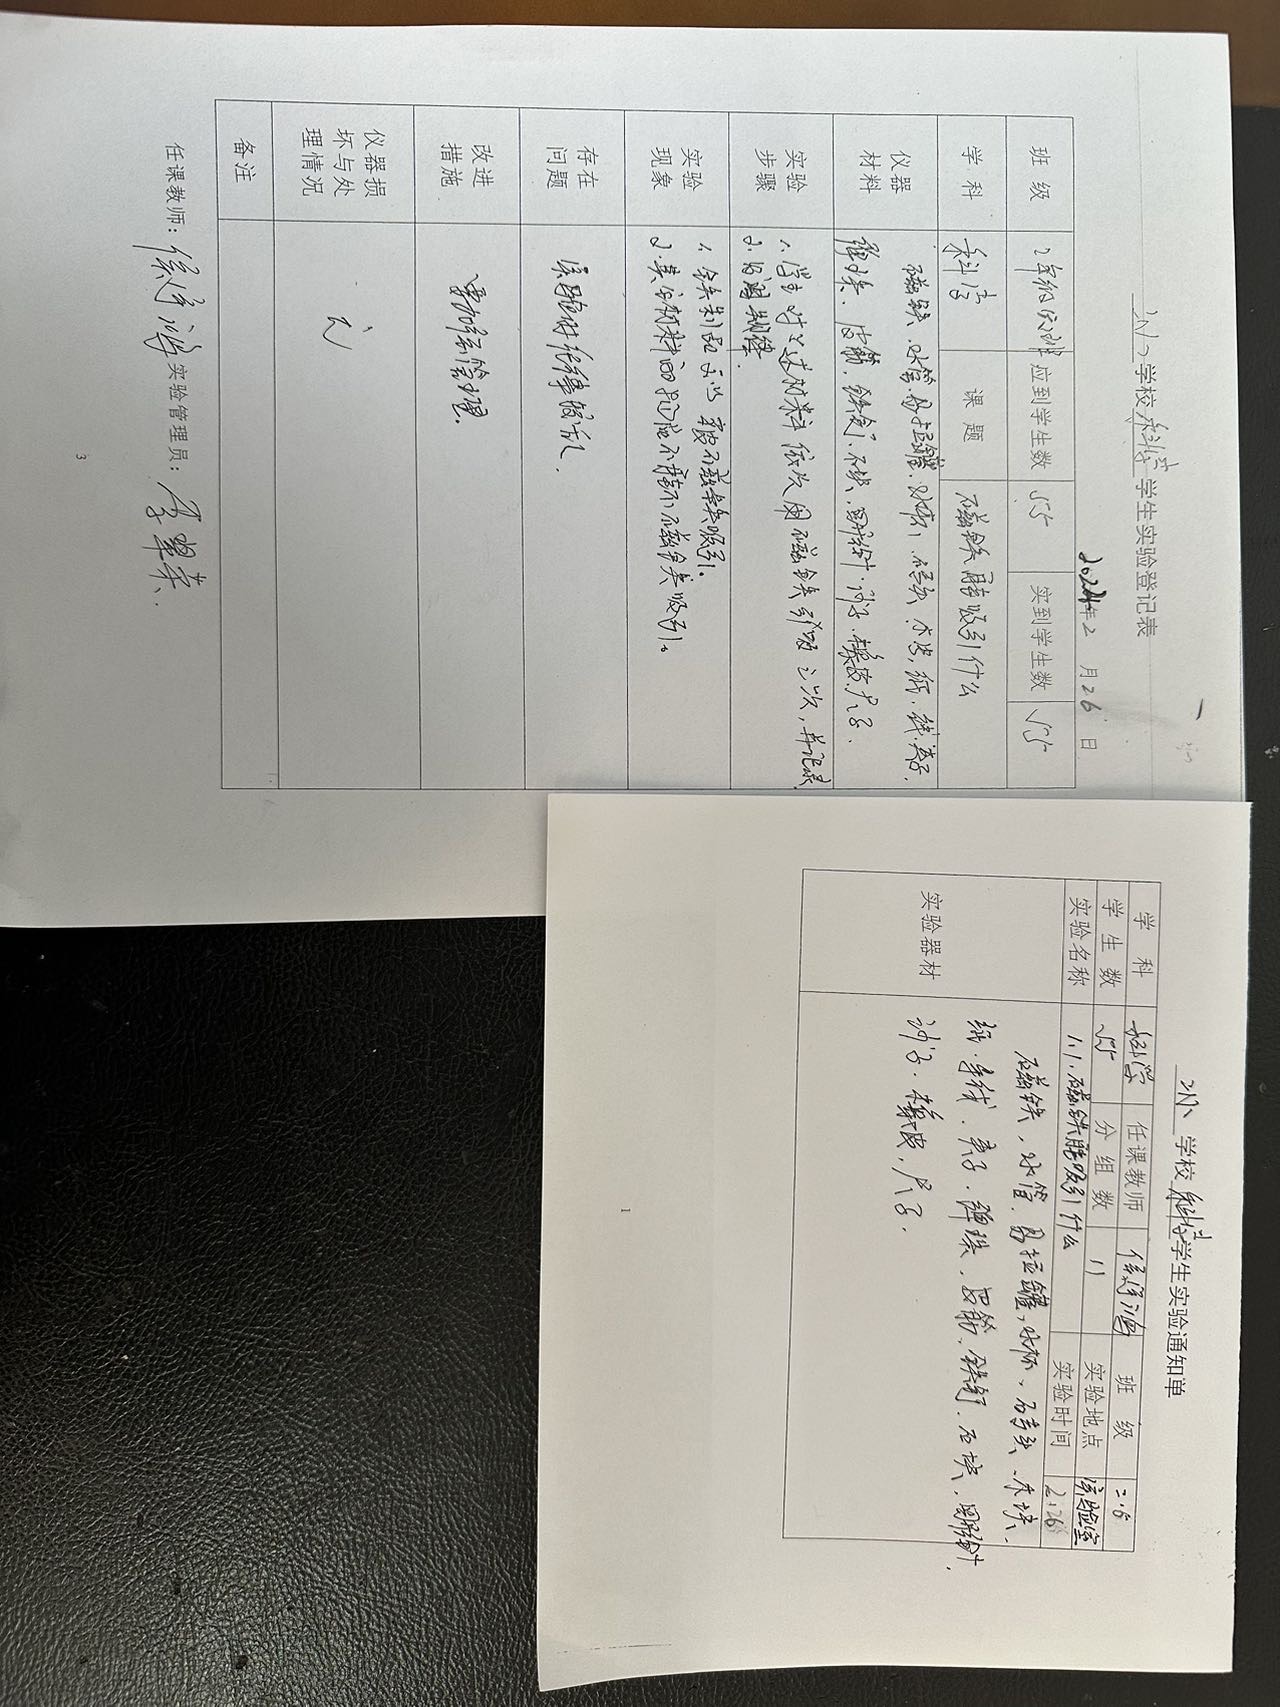 学校科学学生实验登记表
2024年2月26日
班级 2年级 应到学生数 55 实到学生数 55
学科 科学 课题 磁铁能吸引什么
仪器材料 磁铁、水管、易拉罐、水杯、石头、木块、纸、线、夹子、
弹珠、皮筋、铁钉、石块、回形针、沙子、橡皮、尺子.
实验步骤 1、学生对上述材料依次用磁铁引吸一次,并记录
2.
实验现象 1. 铁制品可以被磁铁吸引。
2.其余材料的物品不能被磁铁吸引。
存在问题 实验时纪律较乱.
改进措施 要加强管理.
仪器损坏与处理情况 无
备注
任课教师: 实验管理员:
3
学校科学学生实验通知单
学科 科学 任课教师 班级 二.6
学生数 55 分组数 11 实验地点 实验室
实验名称 1.1.磁铁能吸引什么 实验时间 2.26
实验器材 磁铁、水管、易拉罐、水杯、石头、木块、
纸、线、夹子、弹珠、皮筋、铁钉、石块、回形针、
沙子、橡皮、尺子.
1